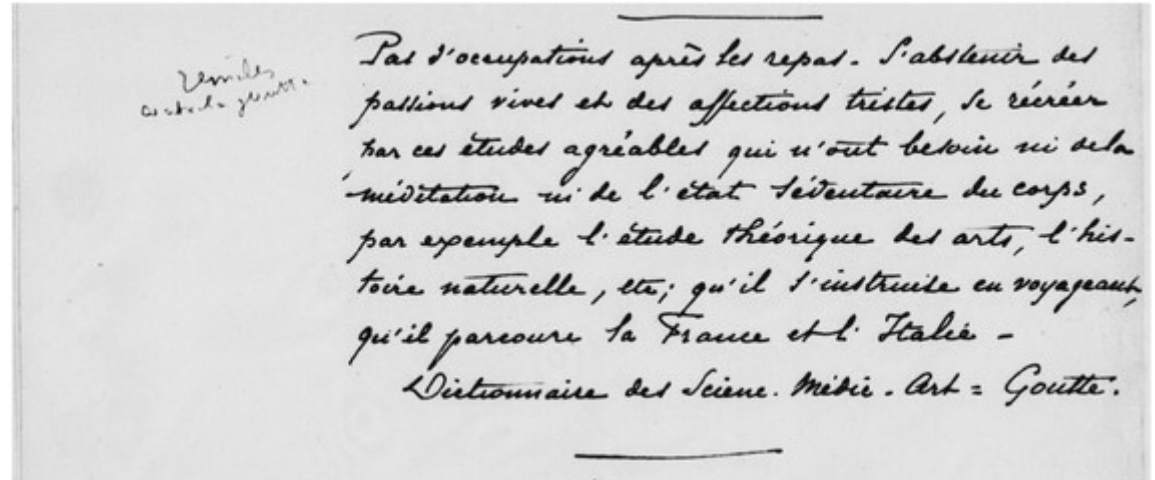 remèdes
contre la goutte
Pas d'occupations après les repas. S'abstenir des
passions vives et des affections tristes, se récréer
par ces études agréables qui n'ont besoin ni de la
méditation ni de l'état sédentaire du corps,
par exemple l'étude théorique des arts, l'his-
toire naturelle, etc; qu'il s'instruise en voyageant,
qu'il parcoure la France et l'Italie -
Dictionnaire des Scienc. Médic. Art = Goutte.